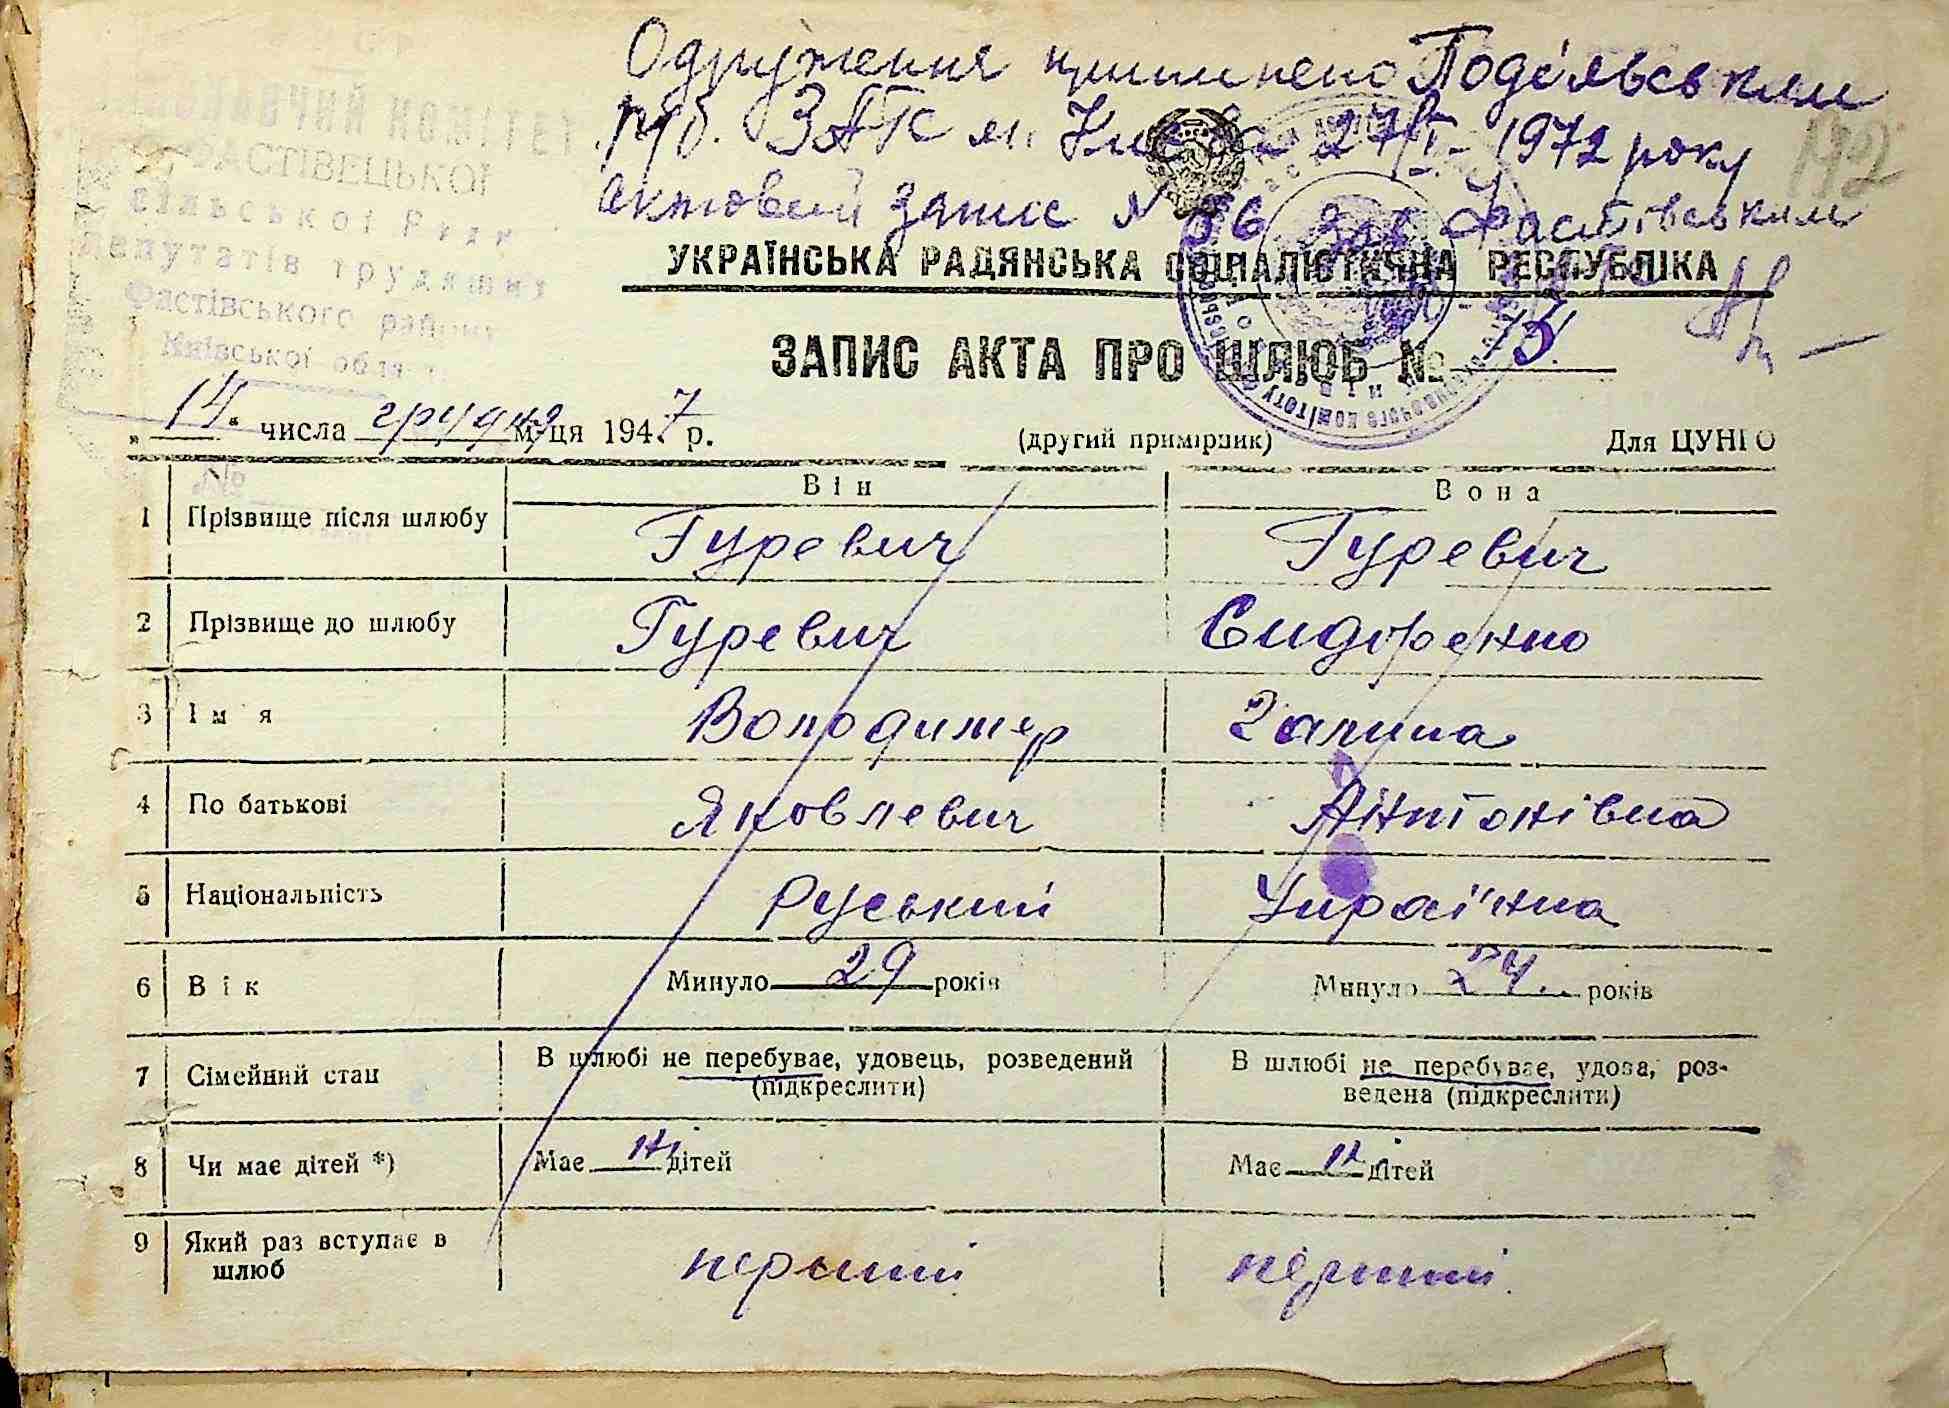 Одруження припинено Подільським
руб. ЗАГС м. Києва 27/VI-1972 року
актовий запис № 56 Зав. Фастівським
192
ВИКОНАВЧИЙ КОМІТЕТ
ФАСТІВЕЦЬКОЇ
сільської Ради
депутатів трудящих
Фастівського району
Київської обла
УКРАЇНСЬКА РАДЯНСЬКА СОЦІАЛІСТИЧНА РЕСПУБЛІКА
ЗАПИС АКТА ПРО ШЛЮБ № 15.
„14" числа грудня м-ця 1947 р. (другий примірник) Для ЦУНГО
Він Вона
1 Прізвище після шлюбу Гуревич Гуревич
2 Прізвище до шлюбу Гуревич Сидоренко
3 Ім'я Володимер Галина
4 По батькові Яковлевич Антонівна
5 Національність Руський Украї'нка
6 Вік Минуло 29 років Минуло 24 років
7 Сімейний стан В шлюбі не перебуває, удовець, розведений (підкреслити) В шлюбі не перебуває, удова, роз-
ведена (підкреслити)
8 Чи має дітей *) Має ні дітей Має ні дітей
9 Який раз вступає в перший перший
шлюб